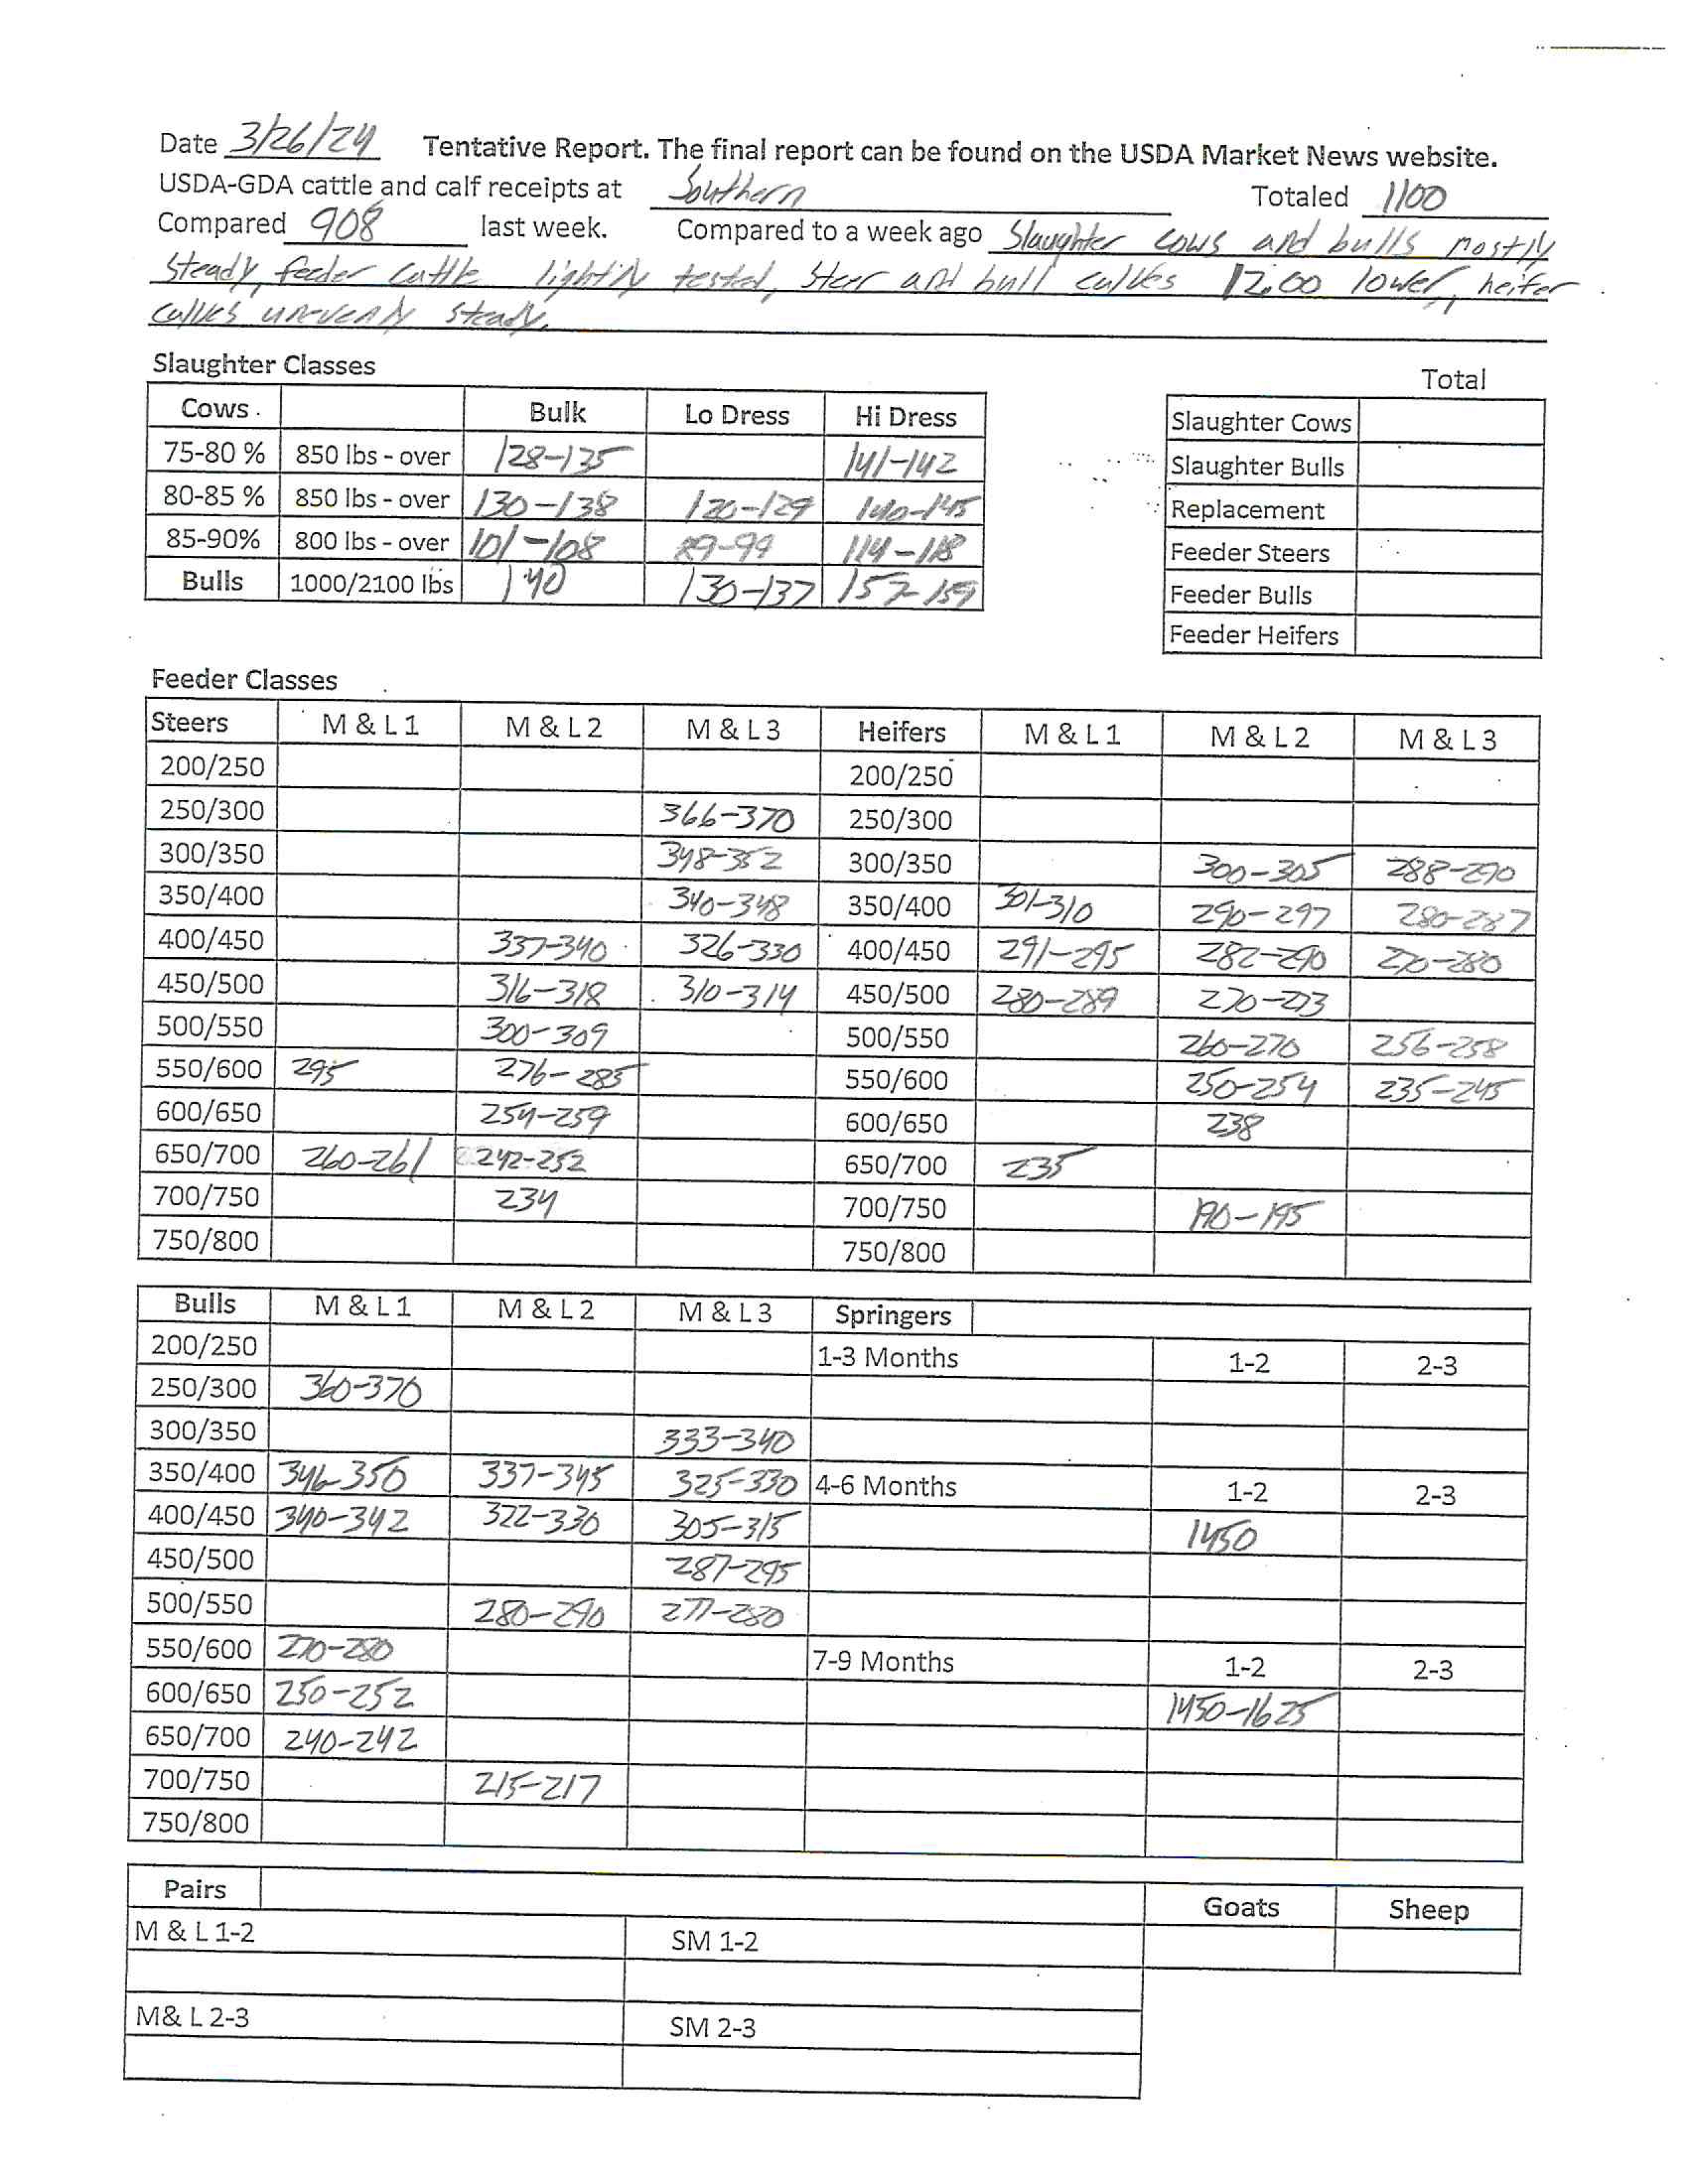 Date 3/26/24 Tentative Report. The final report can be found on the USDA Market News website.
USDA-GDA cattle and calf receipts at Southern Totaled 1100
Compared 908 last week. Compared to a week ago Slaughter cows and bulls mostly
steady, feeder cattle lightly tested, steer and bull calves 12.00 lower, heifer
calves unevenly steady.
Slaughter Classes
Total
Cows Bulk Lo Dress Hi Dress
75-80 % 850 lbs - over 128-135 141-142
80-85 % 850 lbs - over 130-138 120-129 140-145
85-90% 800 lbs - over 101-108 89-99 114-118
Bulls 1000/2100 lbs 140 130-137 157-159
Slaughter Cows
Slaughter Bulls
Replacement
Feeder Steers
Feeder Bulls
Feeder Heifers
Feeder Classes
Steers M & L 1 M & L 2 M & L 3 Heifers M & L 1 M & L 2 M & L 3
200/250 200/250
250/300 366-370 250/300
300/350 348-352 300/350 300-305 288-290
350/400 340-348 350/400 301-310 290-297 280-287
400/450 337-340 326-330 400/450 291-295 282-290 270-280
450/500 316-318 310-314 450/500 280-289 270-273
500/550 300-309 500/550 260-270 256-258
550/600 295 276-285 550/600 250-254 235-245
600/650 254-259 600/650 238
650/700 260-261 242-252 650/700 235
700/750 234 700/750 190-195
750/800 750/800
Bulls M & L 1 M & L 2 M & L 3 Springers
200/250 1-3 Months 1-2 2-3
250/300 360-370
300/350 333-340
350/400 346-350 337-345 325-330 4-6 Months 1-2 2-3
400/450 340-342 322-330 305-315 1450
450/500 287-295
500/550 280-290 277-280
550/600 270-280 7-9 Months 1-2 2-3
600/650 250-252 1450-1625
650/700 240-242
700/750 215-217
750/800
Pairs Goats Sheep
M & L 1-2 SM 1-2
M& L 2-3 SM 2-3